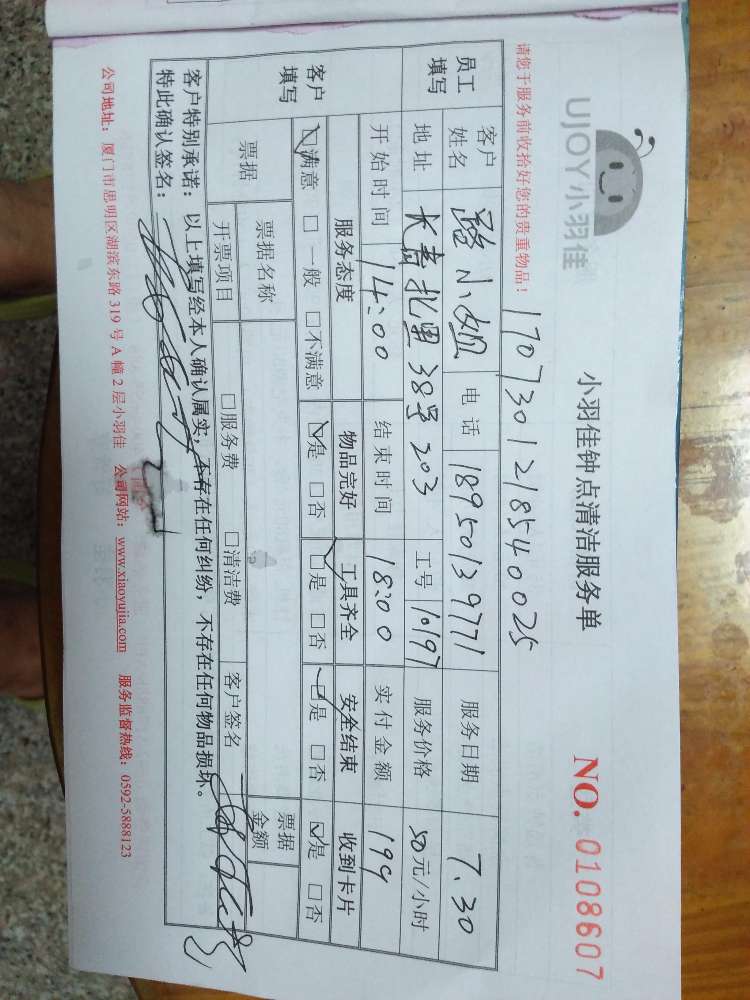 UJOY小羽佳
小羽佳钟点清洁服务单
NO. 0108607
请您于服务前收拾好您的贵重物品！
1707301218540025
员工填写
客户姓名 小姐 电话 18950139771 服务日期 7.30
地址 北里38号203 工号 10197 服务价格 50元/小时
开始时间 14:00 结束时间 18:00 实付金额 199
客户填写
服务态度 物品完好 工具齐全 安全结束 收到卡片
☑满意 □一般 □不满意 ☑是 □否 ☑是 □否 ☑是 □否 ☑是 □否
票据 票据名称 票据金额
开票项目 □服务费 □清洁费 客户签名
客户特别承诺：以上填写经本人确认属实，不存在任何纠纷，不存在任何物品损坏。
特此确认签名：
公司地址：厦门市思明区湖滨东路319号A幢2层小羽佳 公司网站：www.xiaoyujia.com 服务监督热线：0592-5888123